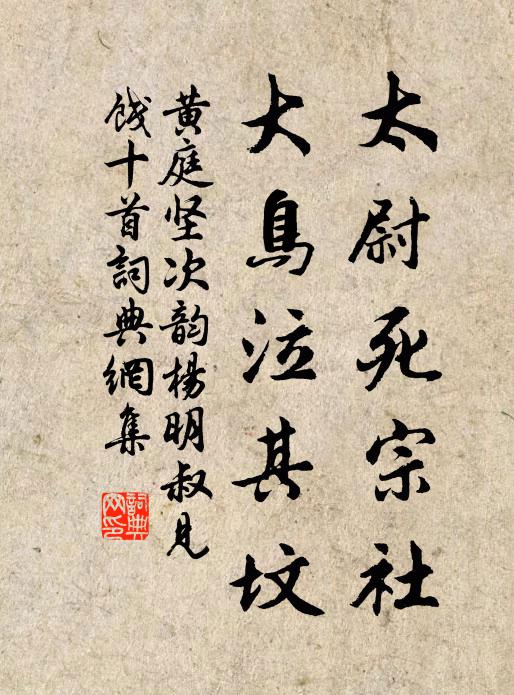 太尉死宗社
大鳥泣其坟
黄庭坚次韵楊明叔見
餞十首詞典網集
詞典网印